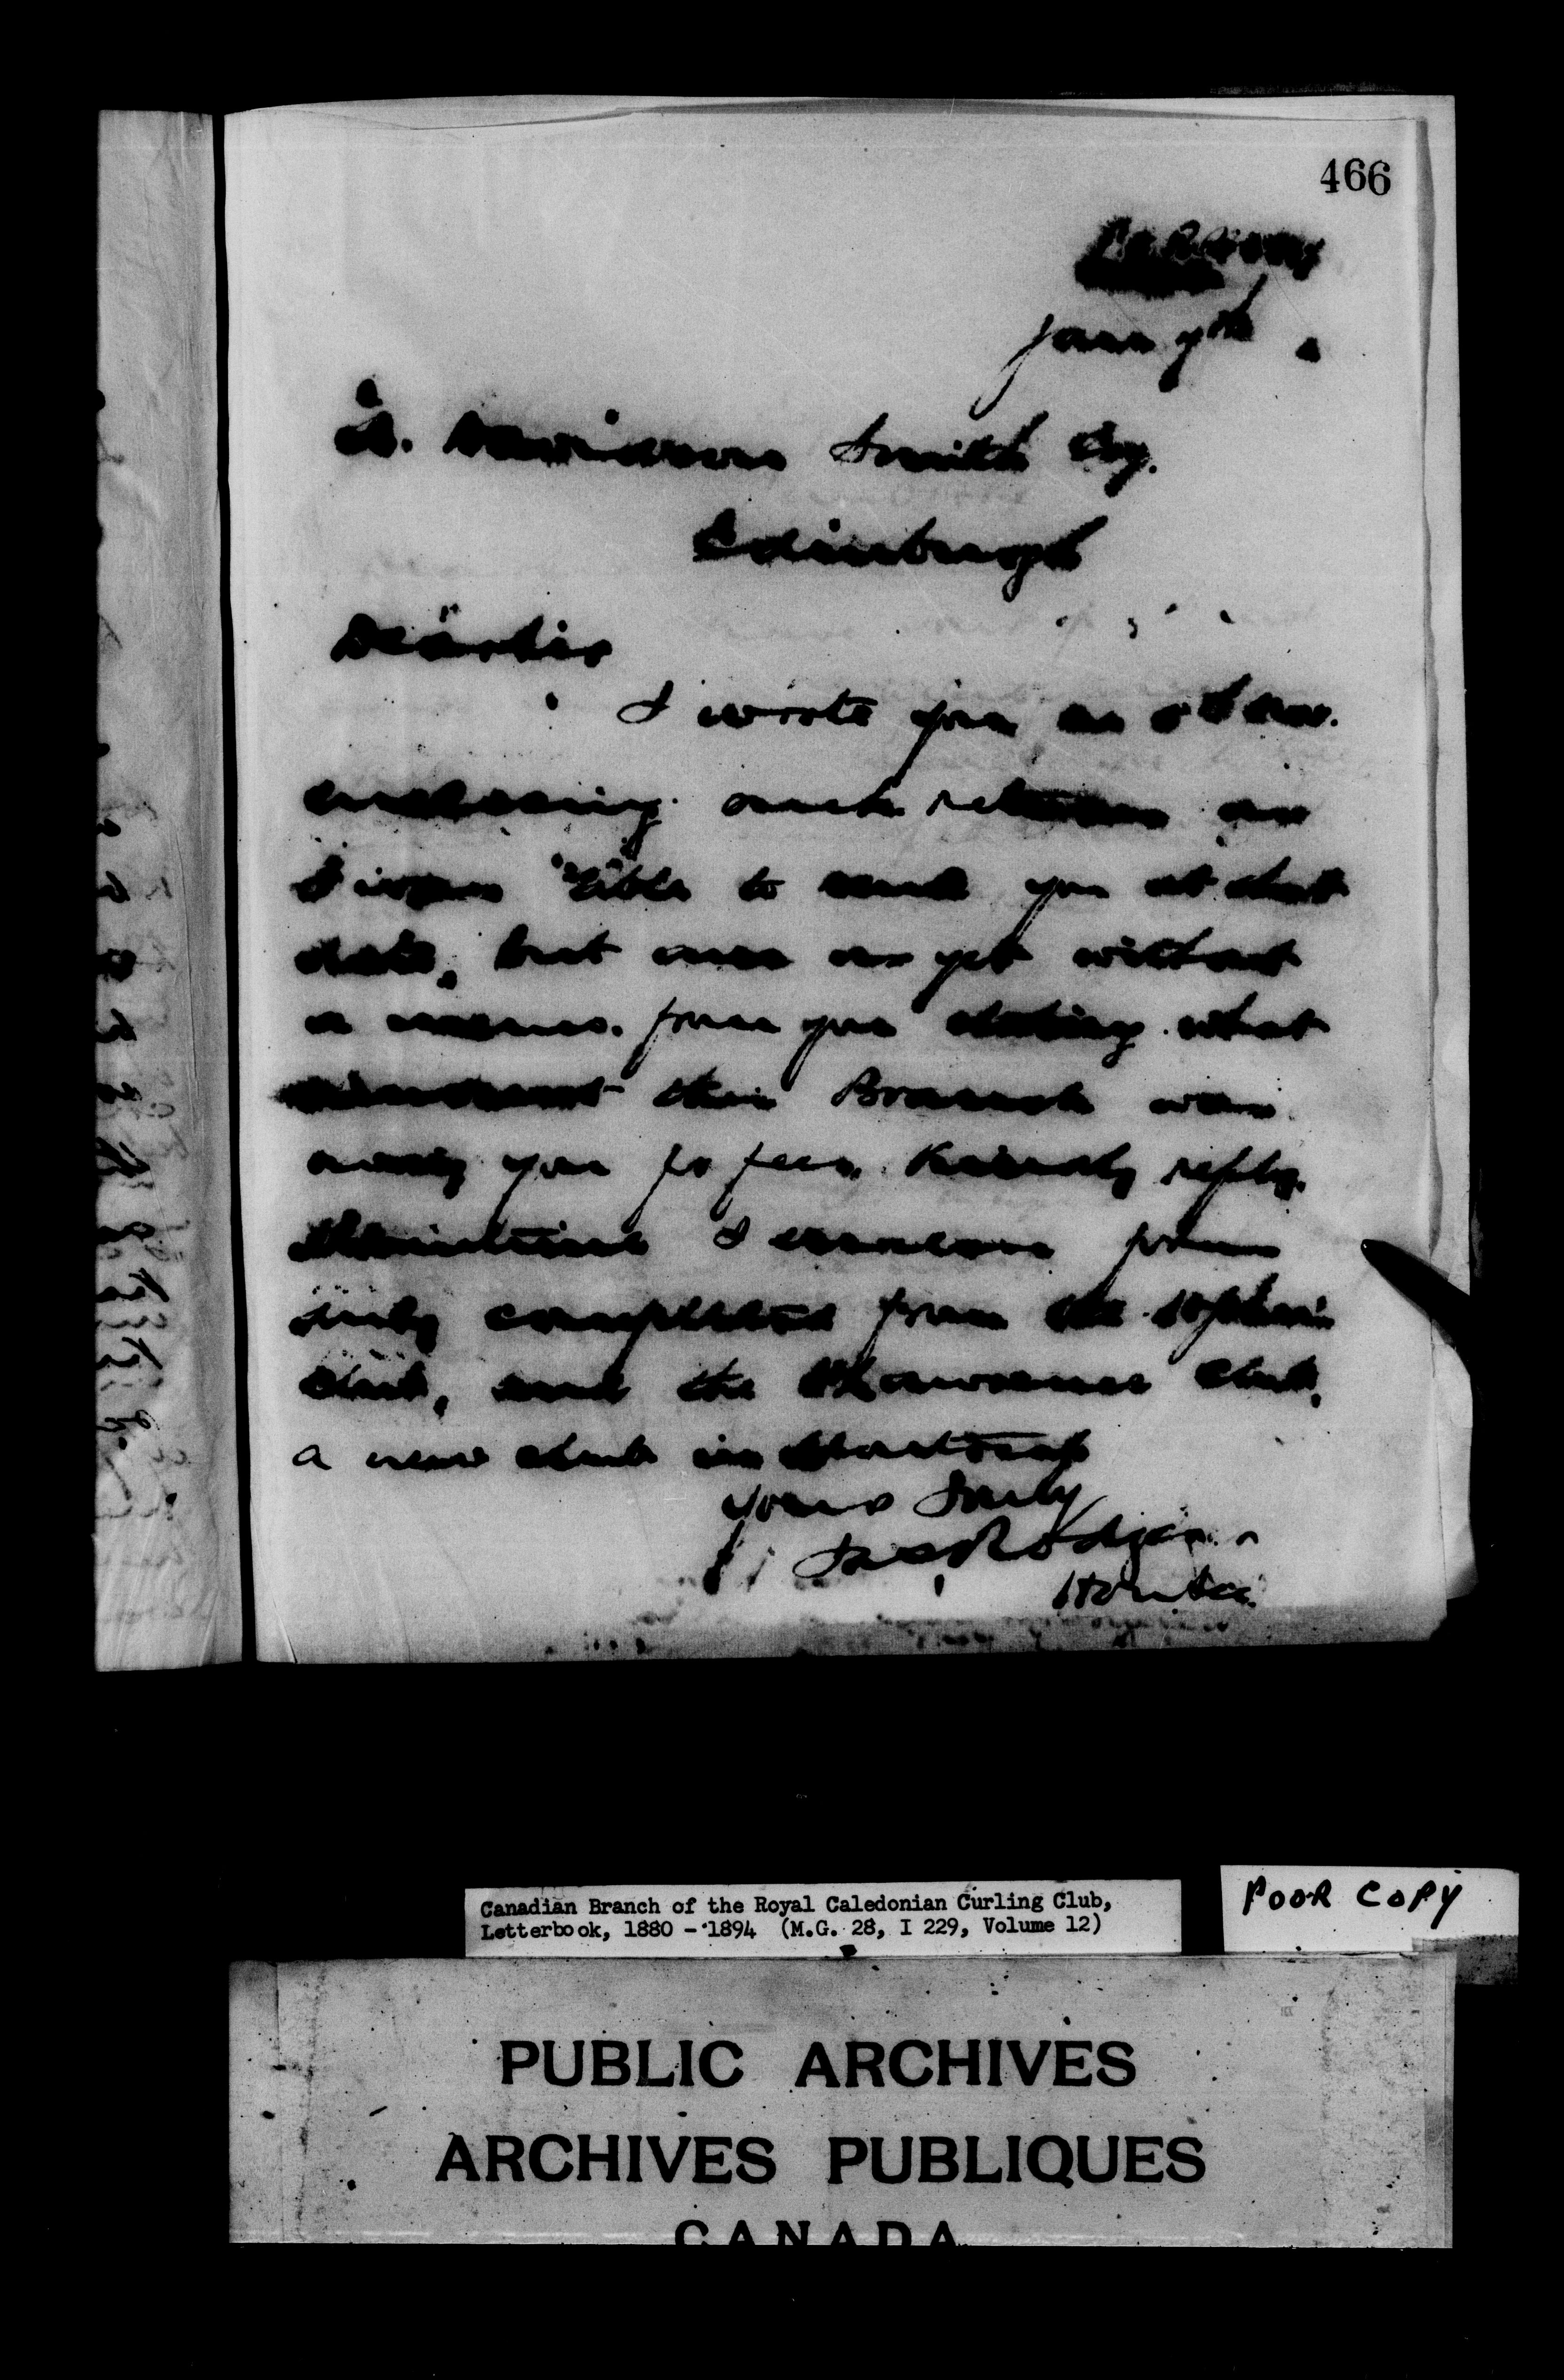 466
Jany 7th
A. Davidson Smith Esq.
Edinburgh
Dear Sir
I wrote you on 8th
enclosing such returns as
I was able to send you at that
date, but am as yet without
a memo. from you stating what
amount this Branch was
owing you for fees. Kindly reply.
Meantime I enclose forms
duly completed from the
Club, and the St Lawrence Club,
a new club in Montreal
Yours Truly
Jas Rodger
Hon Sec
Canadian Branch of the Royal Caledonian Curling Club,
Letterbook, 1880 - 1894 (M.G. 28, I 229, Volume 12)
POOR COPY
PUBLIC ARCHIVES
ARCHIVES PUBLIQUES
CANADA